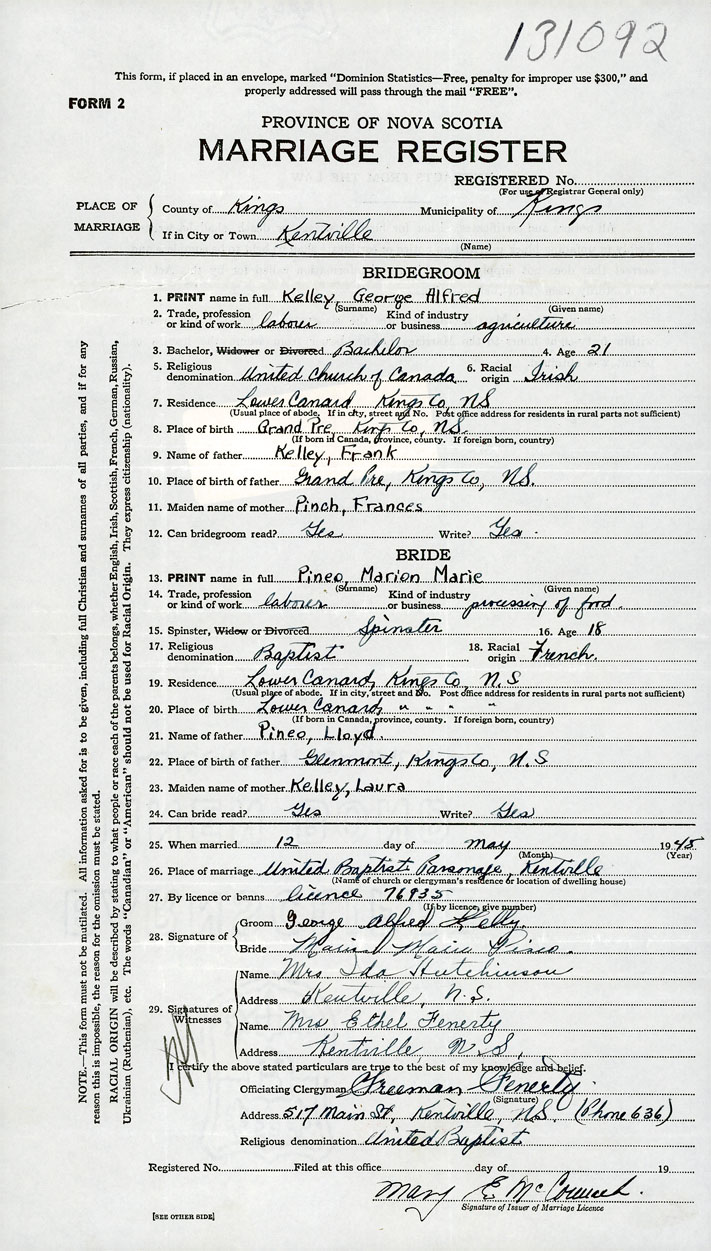 131092
This form, if placed in an envelope, marked "Dominion Statistics—Free, penalty for improper use $300," and
properly addressed will pass through the mail "FREE".
FORM 2
PROVINCE OF NOVA SCOTIA
MARRIAGE REGISTER
REGISTERED No.
(For use of Registrar General only)
PLACE OF MARRIAGE
County of Kings Municipality of Kings
If in City or Town Kentville
(Name)
BRIDEGROOM
1. PRINT name in full Kelley, George Alfred
(Surname) (Given name)
2. Trade, profession or kind of work labourer Kind of industry or business agriculture
3. Bachelor, Widower or Divorced Bachelor 4. Age 21
5. Religious denomination United Church of Canada 6. Racial origin Irish
7. Residence Lower Canard Kings Co, NS
(Usual place of abode. If in city, street and No. Post office address for residents in rural parts not sufficient)
8. Place of birth Grand Pre, Kings Co, N.S.
(If born in Canada, province, county. If foreign born, country)
9. Name of father Kelley, Frank
10. Place of birth of father Grand Pre, Kings Co, N.S.
11. Maiden name of mother Pinch, Frances
12. Can bridegroom read? Yes Write? Yes
BRIDE
13. PRINT name in full Pineo, Marion Marie
(Surname) (Given name)
14. Trade, profession or kind of work labourer Kind of industry or business processing of food.
15. Spinster, Widow or Divorced Spinster 16. Age 18
17. Religious denomination Baptist 18. Racial origin French.
19. Residence Lower Canard, Kings Co, N.S
(Usual place of abode. If in city, street and No. Post office address for residents in rural parts not sufficient)
20. Place of birth Lower Canard, " " " "
(If born in Canada, province, county. If foreign born, country)
21. Name of father Pineo, Lloyd.
22. Place of birth of father Glenmont, Kings Co, N.S
23. Maiden name of mother Kelley, Laura
24. Can bride read? Yes Write? Yes
25. When married 12 day of May 1945
(Month) (Year)
26. Place of marriage United Baptist Parsonage, Kentville
(Name of church or clergyman's residence or location of dwelling house)
27. By licence or banns licence 76935
(If by licence, give number)
28. Signature of
Groom George Alfred Kelly.
Bride Marion Marie Pineo.
29. Signatures of Witnesses
Name Mrs Ida Hutchinson
Address Kentville, N.S.
Name Mrs Ethel Fenerty
Address Kentville, N.S.,
I certify the above stated particulars are true to the best of my knowledge and belief.
Officiating Clergyman Freeman Fenerty.
(Signature)
Address 517 Main St, Kentville, NS. (Phone 636)
Religious denomination United Baptist
Registered No. Filed at this office day of 19
Mary E McCormick.
Signature of Issuer of Marriage Licence
[SEE OTHER SIDE]
NOTE.—This form must not be mutilated. All information asked for is to be given, including full Christian and surnames of all parties, and if for any
reason this is impossible, the reason for the omission must be stated.
RACIAL ORIGIN will be described by stating to what people or race each of the parents belongs, whether English, Irish, Scottish, French, German, Russian,
Ukrainian (Ruthenian), etc. The words "Canadian" or "American" should not be used for Racial Origin. They express citizenship (nationality).